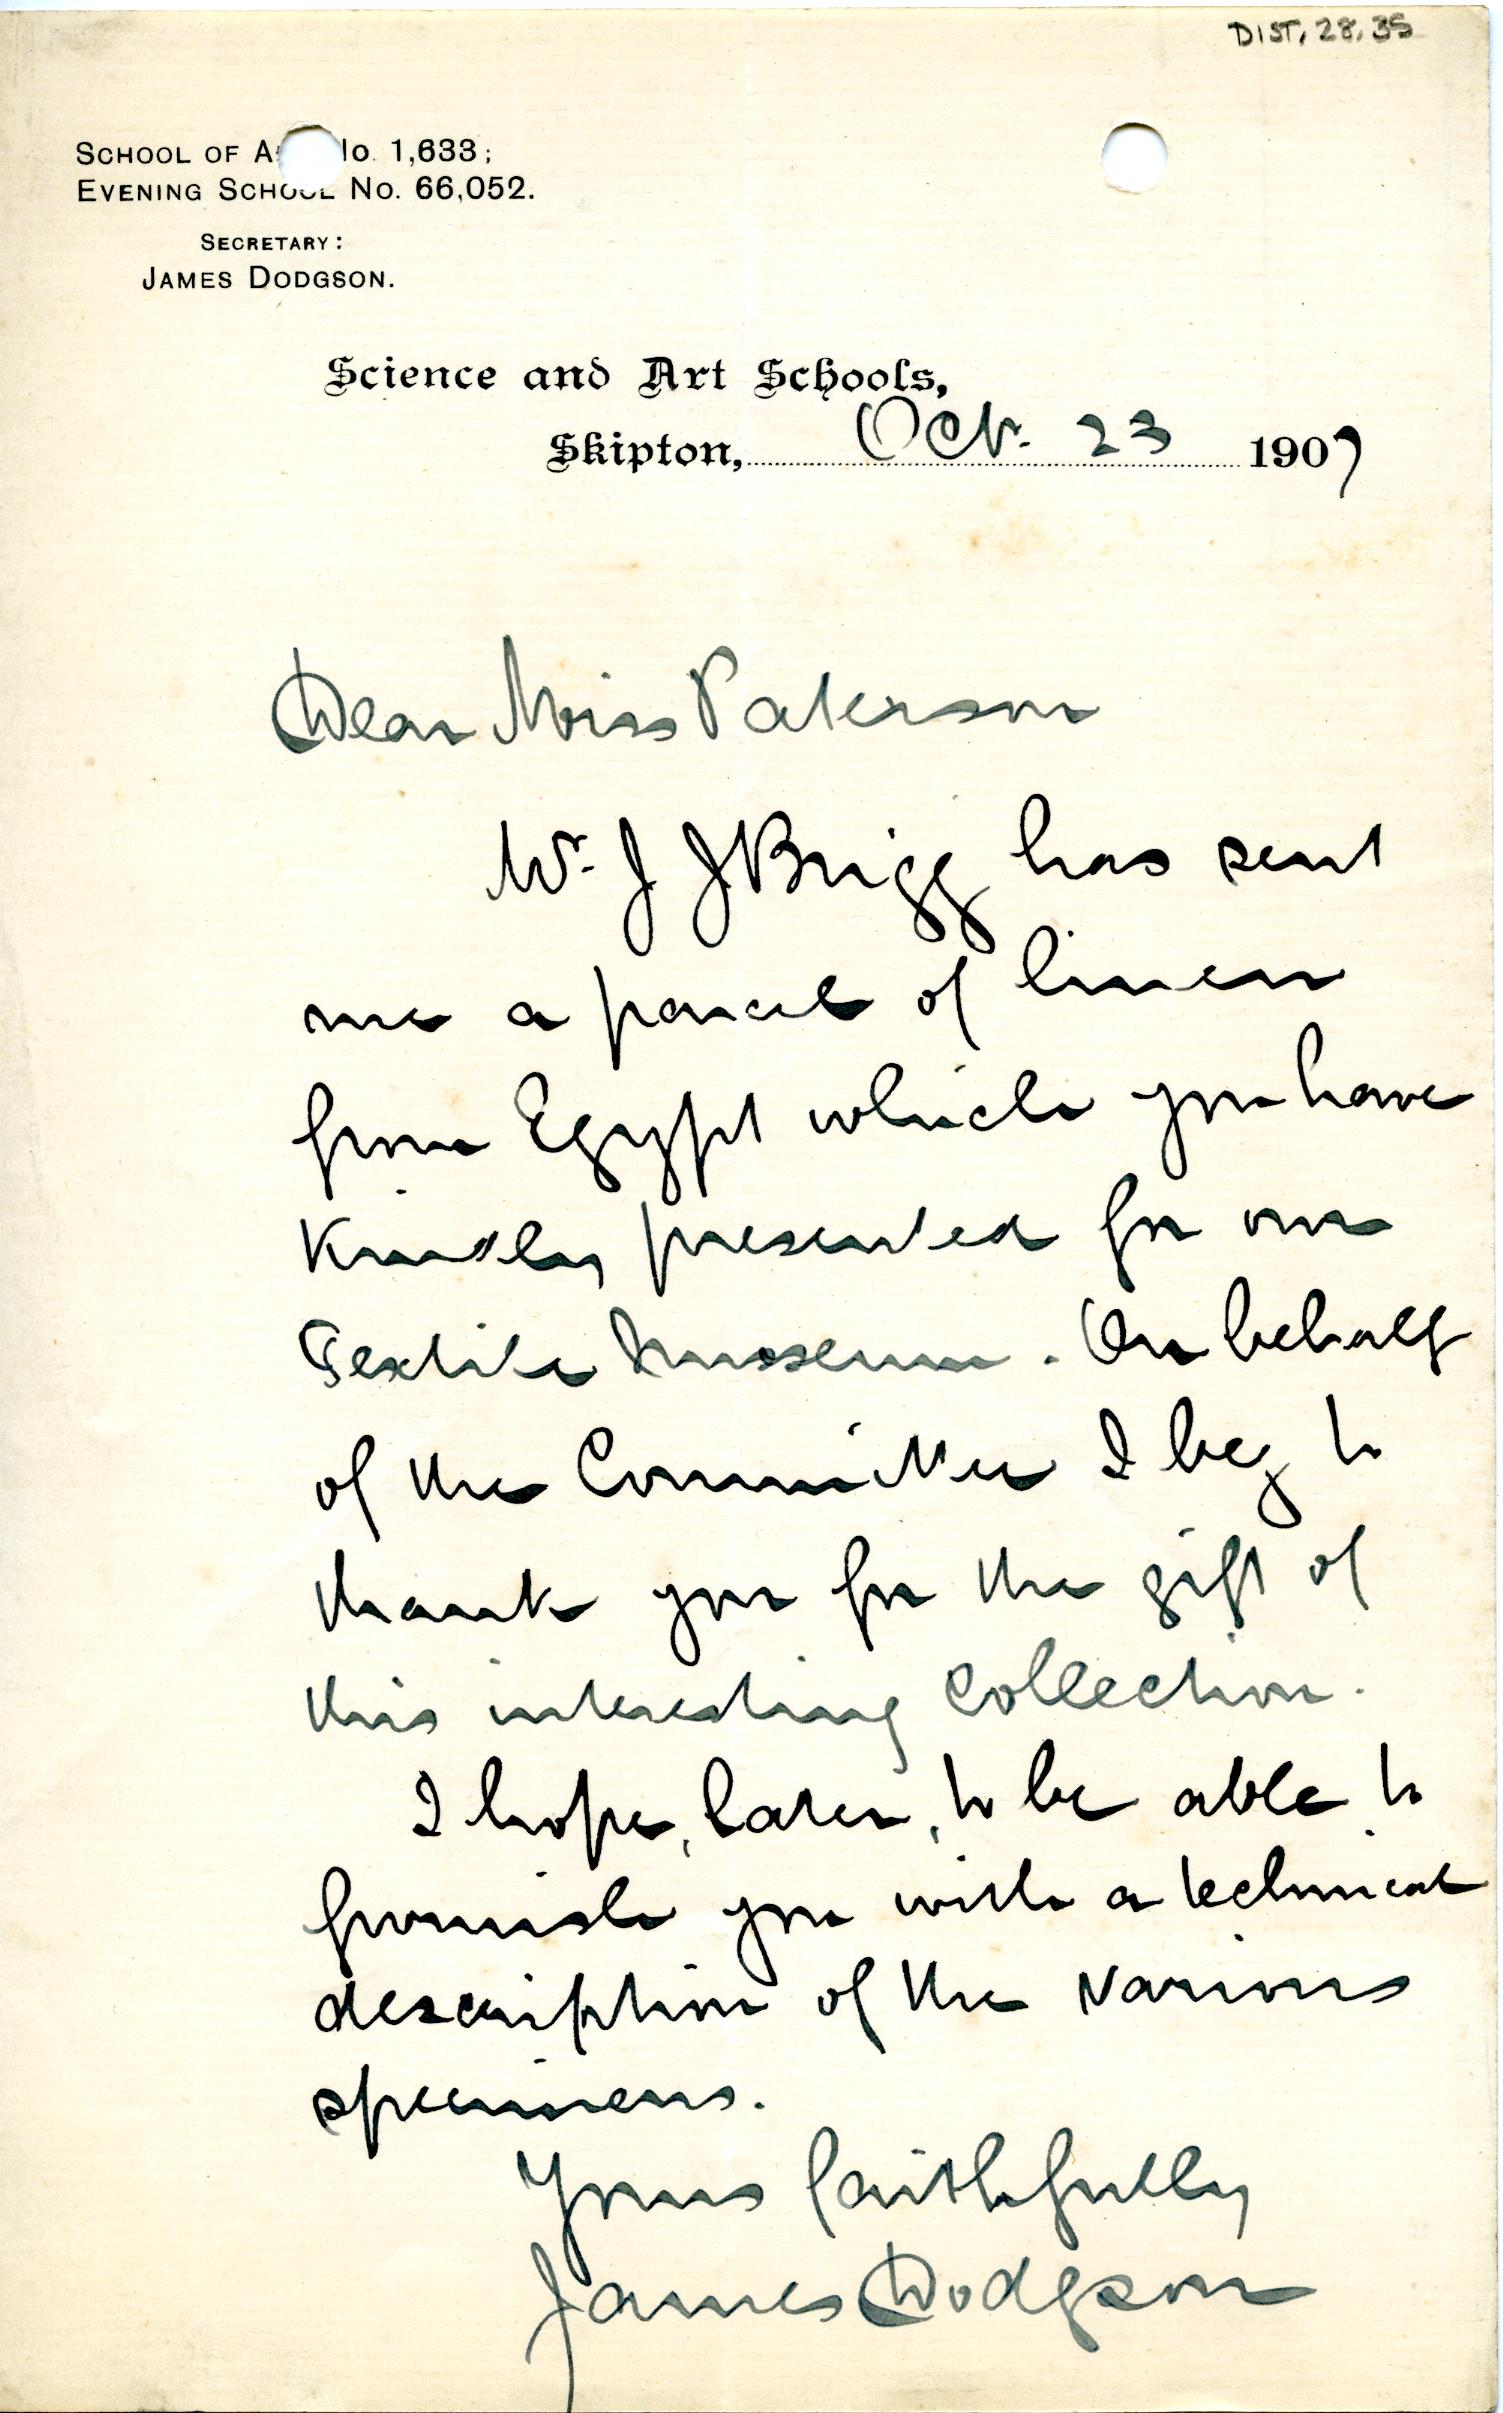 DIST. 28. 35
SCHOOL OF A No. 1,633;
EVENING SCHOOL No. 66,052.
SECRETARY:
JAMES DODGSON.
Science and Art Schools,
Skipton, Oct. 23 1907
Dear Miss Paterson
Mr. J J Brigg has sent
me a parcel of linen
from Egypt which you have
kindly presented for our
Textile Museum. On behalf
of the Committee I beg to
thank you for the gift of
this interesting collection.
I hope, later, to be able to
furnish you with a technical
description of the various
specimens.
Yours faithfully
James Dodgson